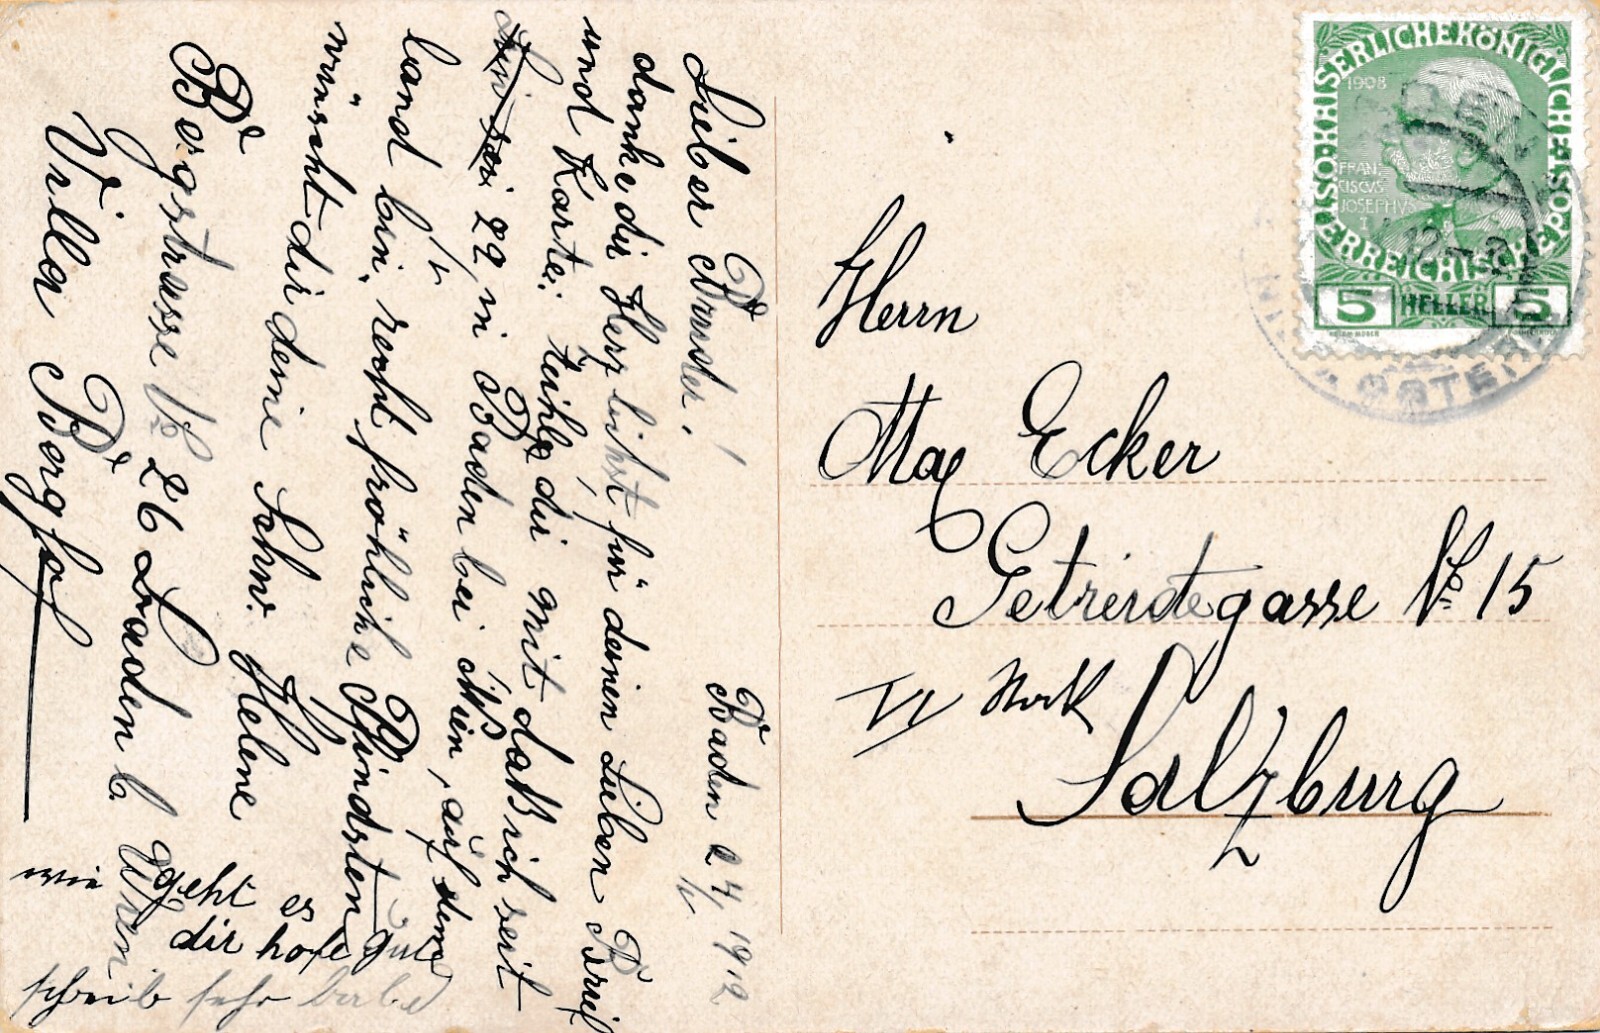 Baden 24/V 1912
Lieber Bruder!
danke dir Herzlichst für deinen Lieben Brief
und Karte. teihle dir mit daß ich seit
22 in Baden bei Wien, auf dem
land bin, recht fröhliche Pfindsten
wünscht dir deine Schw. Helene
Bergstrasse 26 Baden b. Wien
Villa Berghof
wie geht es
dir hofe gute
schreib sehr balbd
Herrn
Max Ecker
Getreidegasse No. 15
IV Stock
Salzburg
KAISERLICHE KÖNIGLICHE ÖSTERREICHISCHE POST
1908
FRAN
CISCVS
JOSEPHVS
I
5 HELLER 5